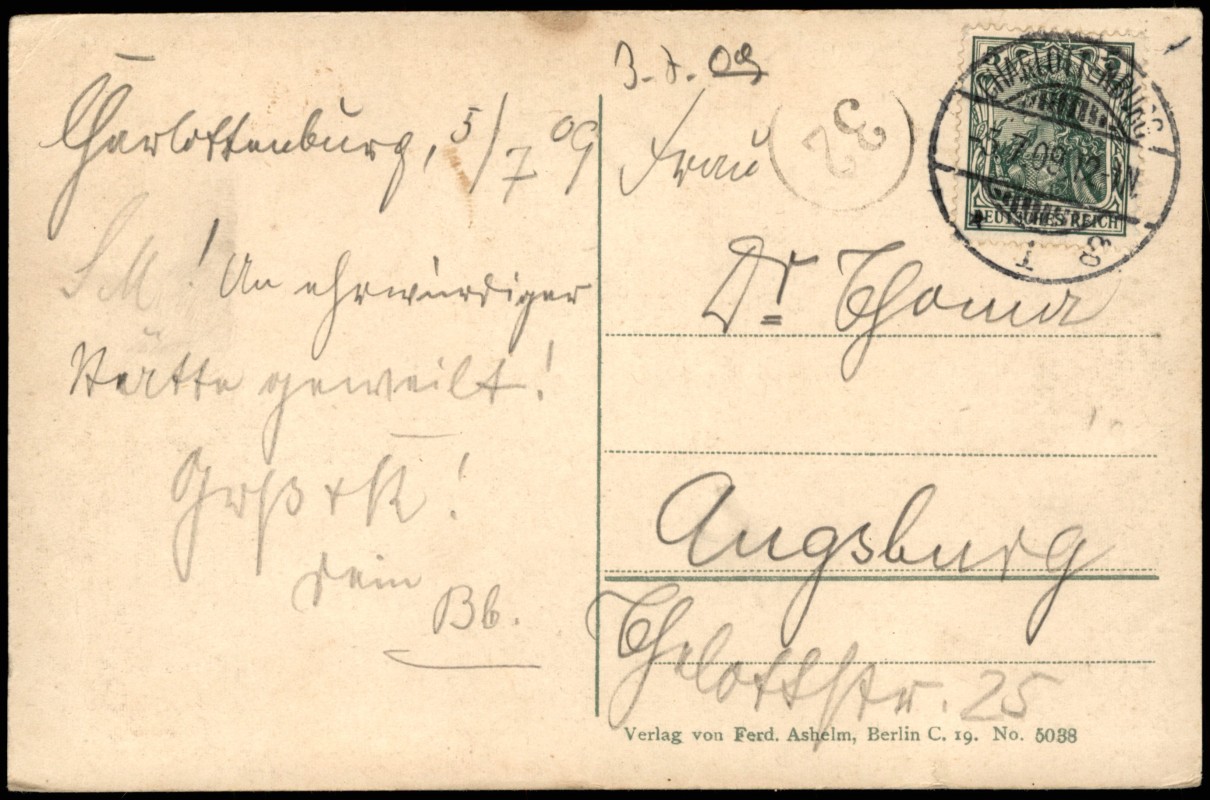 Charlottenburg, 5/7 09
An ehrwürdiger
Stätte geweilt!
Gruß + K!
Dein
Bb.
3.7.09
Frau
32
Dr Thoma
Augsburg
Thelottstr. 25
CHARLOTTENBURG
5.7.09.12-1N.
* 1 g
DEUTSCHES REICH
Verlag von Ferd. Ashelm, Berlin C. 19. No. 5038